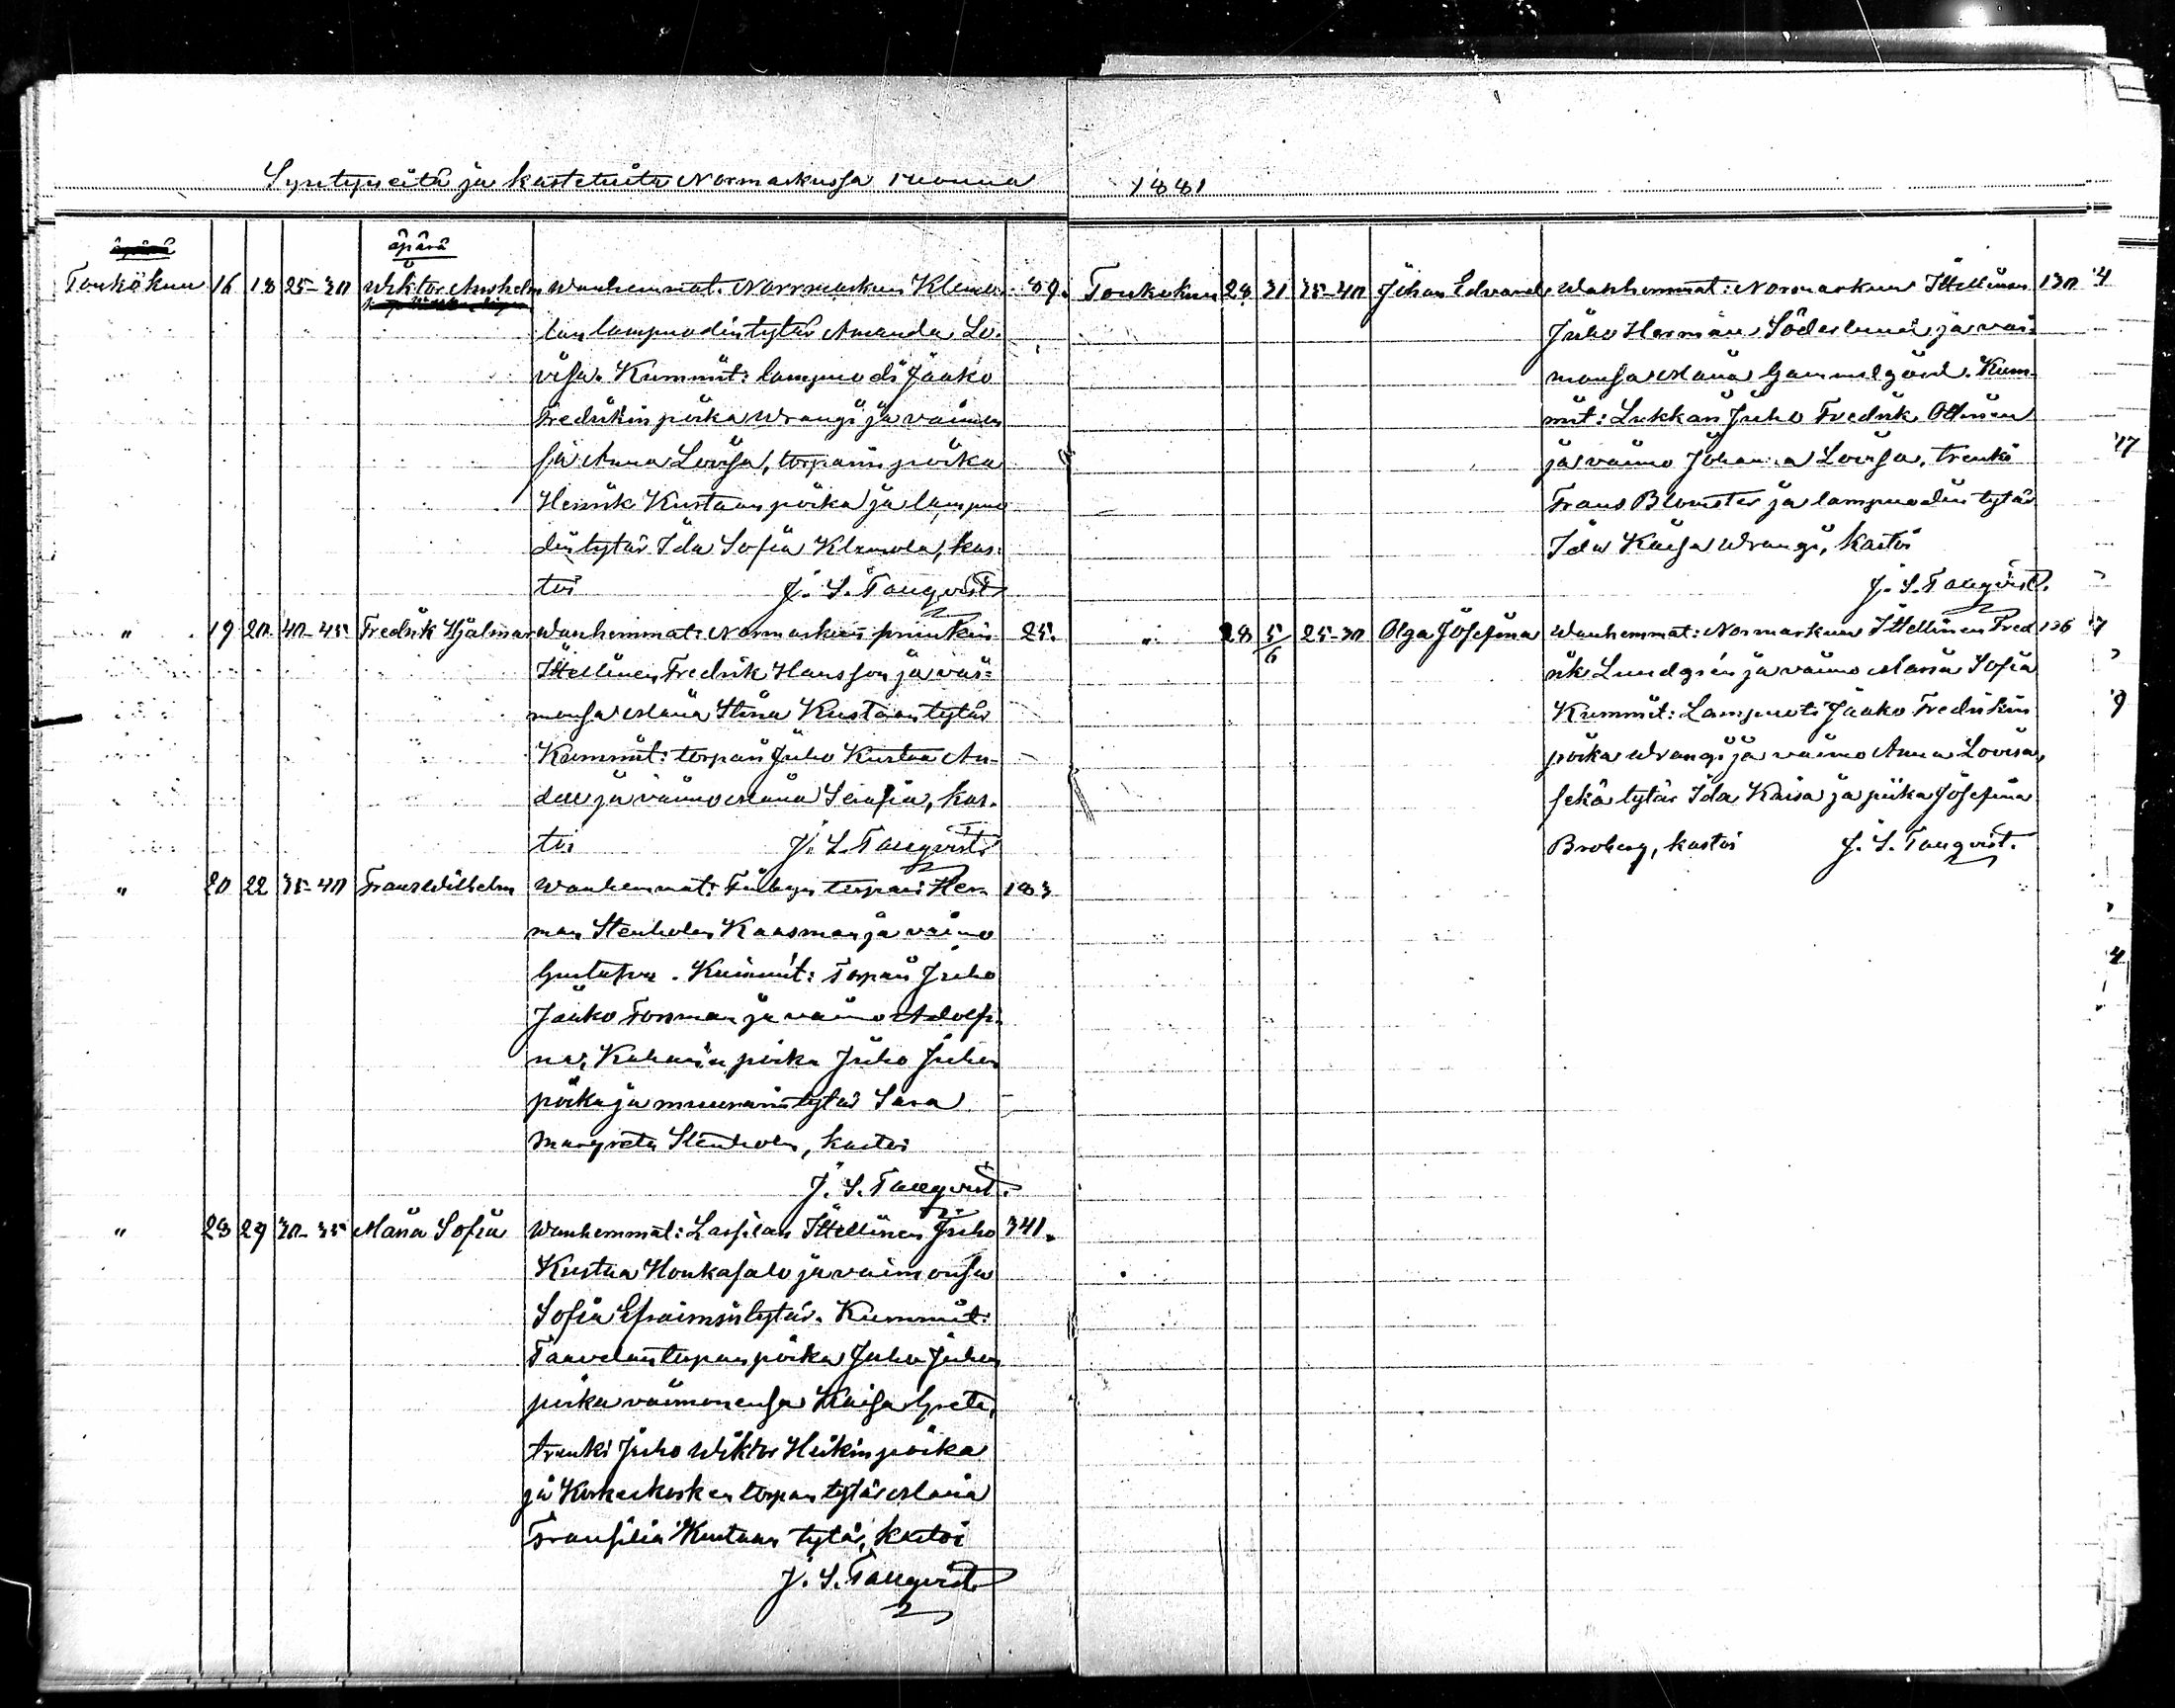 Syntyneitä ja kastetuita Normarkussa vuonna
äpärä
äpärä
Toukokuu 16 18 25-30 Wiktor Anshelm Wanhemmat: Normarkun Klemo- 89.
lan lampuodin tytär Amanda Lo-
visa. Kummit: lampuodi Jaako
Fredrikin poika Wrangi ja vaimon
sa Anna Lovisa, torparin poika
Henrik Kustaan poika ja lampuo
din tytär Ida Sofia Klemola, kas-
toi J. S. Tanqvist
" 19 20 40-45 Fredrik Hjalmar Wanhemmat: Normarkun
Ittellinen Fredrik Hansson ja vai-
monsa Maria Stina Kustaan tytär
Kummit: torpari Juho Kustaa
ja vaimo Maria Serafia, kas-
toi J. S. Tanqvist
" 20 22 35-40 Frans Wilhelm Wanhemmat: torpari Her- 183
man Stenholm Kaasmar ja vaimo
Gustafva. Kummit: Torpari Juho
Jaako Forsman ja vaimo Adolfi-
na, poika Juho Juhon
poika ja muurarin tytär Sara
Margreta Stenholm, kastoi
J. S. Tanqvist.
" 28 29 30-35 Maria Sofia Wanhemmat: Lassilan Ittellinen Juho 341.
Kustaa Honkasalo ja vaimonsa
Sofia Efraimin tytär. Kummit:
torparin poika Juho Juhon
poika vaimonensa Kaisa Greta,
trenki Juho Wiktor Heikin poika
ja Korkeakosken torpan tytär Maria
Fransilia Kustaan tytär, kastoi
J. S. Tanqvist
1881
Toukokuu 28 31 35-40 Johan Edvard Wanhemmat: Normarkun Ittellinen 130
Juho Herman Söderlund ja vai-
monsa Maria Gammelgård. Kum-
mit: Lukkari Juho Fredrik Ottman
ja vaimo Johanna Lovisa, trenki
Frans Blomster ja lampuodin tytär
Ida Kaisa Wrangi, kastoi
J. S. Tanqvist.
" 28 5/6 25-30 Olga Josefina Wanhemmat: Normarkun Ittellinen Fred 126
rik Lundgrén ja vaimo Maria Sofia
Kummit: Lampuoti Jaako Fredrikin
poika Wrangi ja vaimo Anna Lovisa,
sekä tytär Ida Kaisa ja piika Josefina
Broberg, kastoi J. S. Tanqvist.